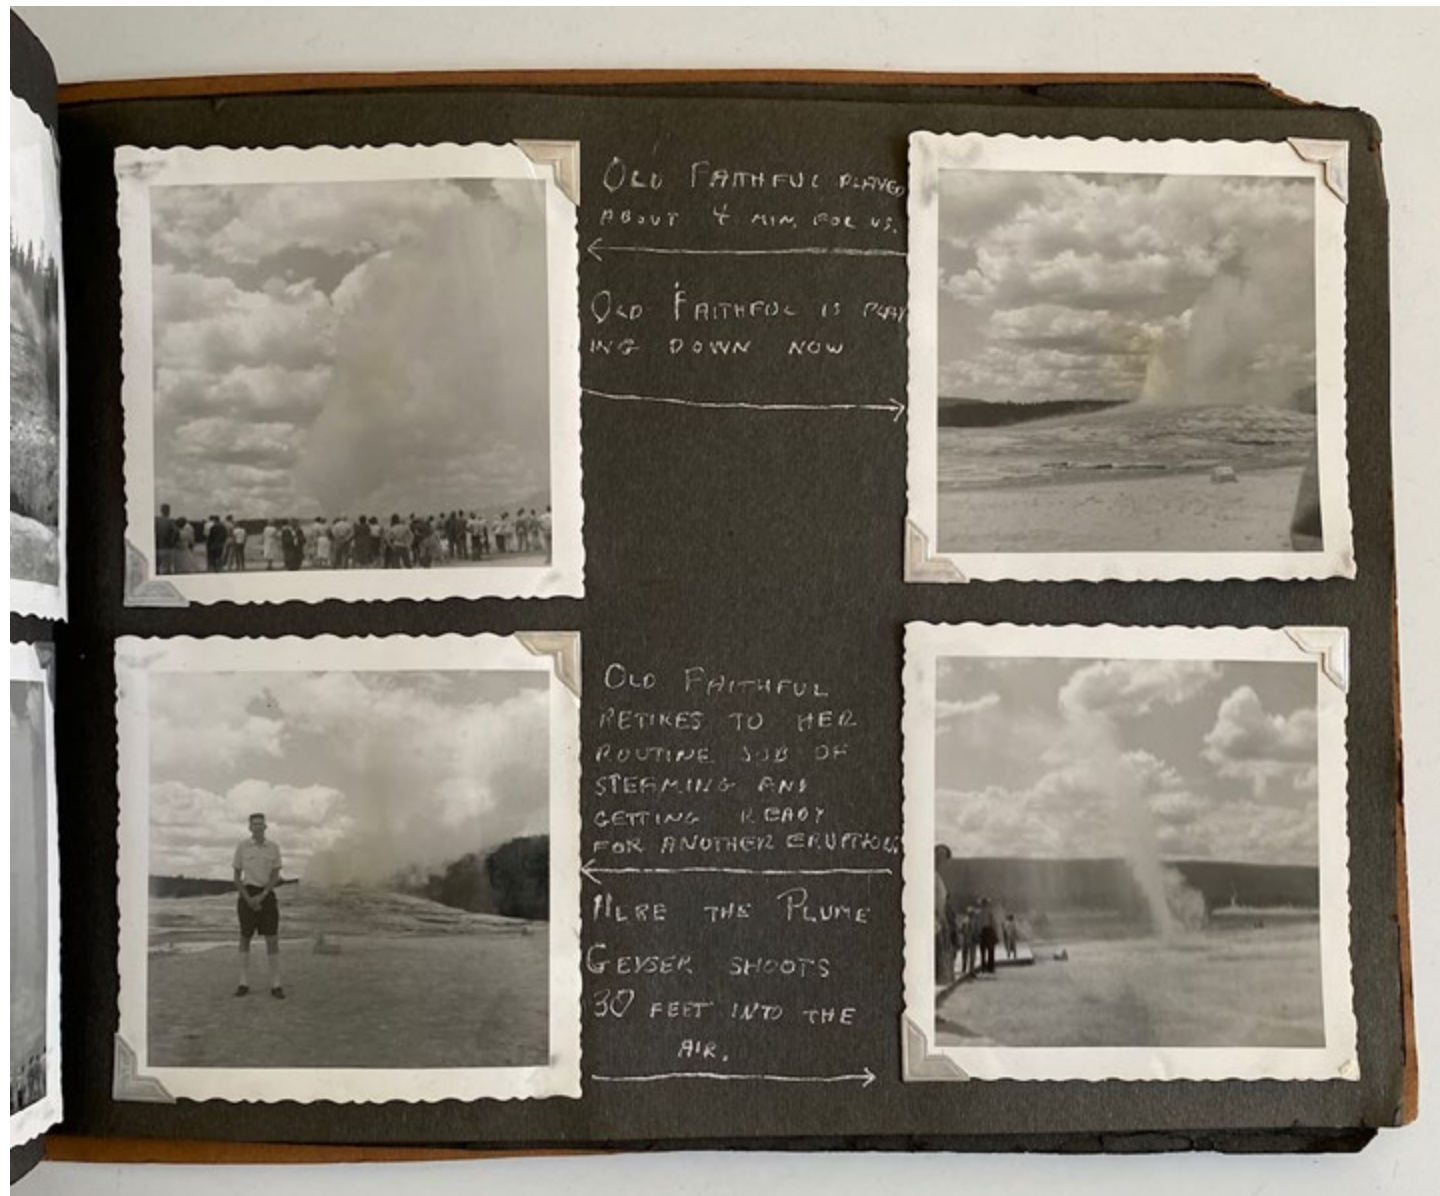 OLD FAITHFUL PLAYED
ABOUT 4 MIN. FOR US.
OLD FAITHFUL IS PLAY
ING DOWN NOW
OLD FAITHFUL
RETIRES TO HER
ROUTINE JOB OF
STEAMING AND
GETTING READY
FOR ANOTHER ERUPTION.
HERE THE PLUME
GEYSER SHOOTS
30 FEET INTO THE
AIR.